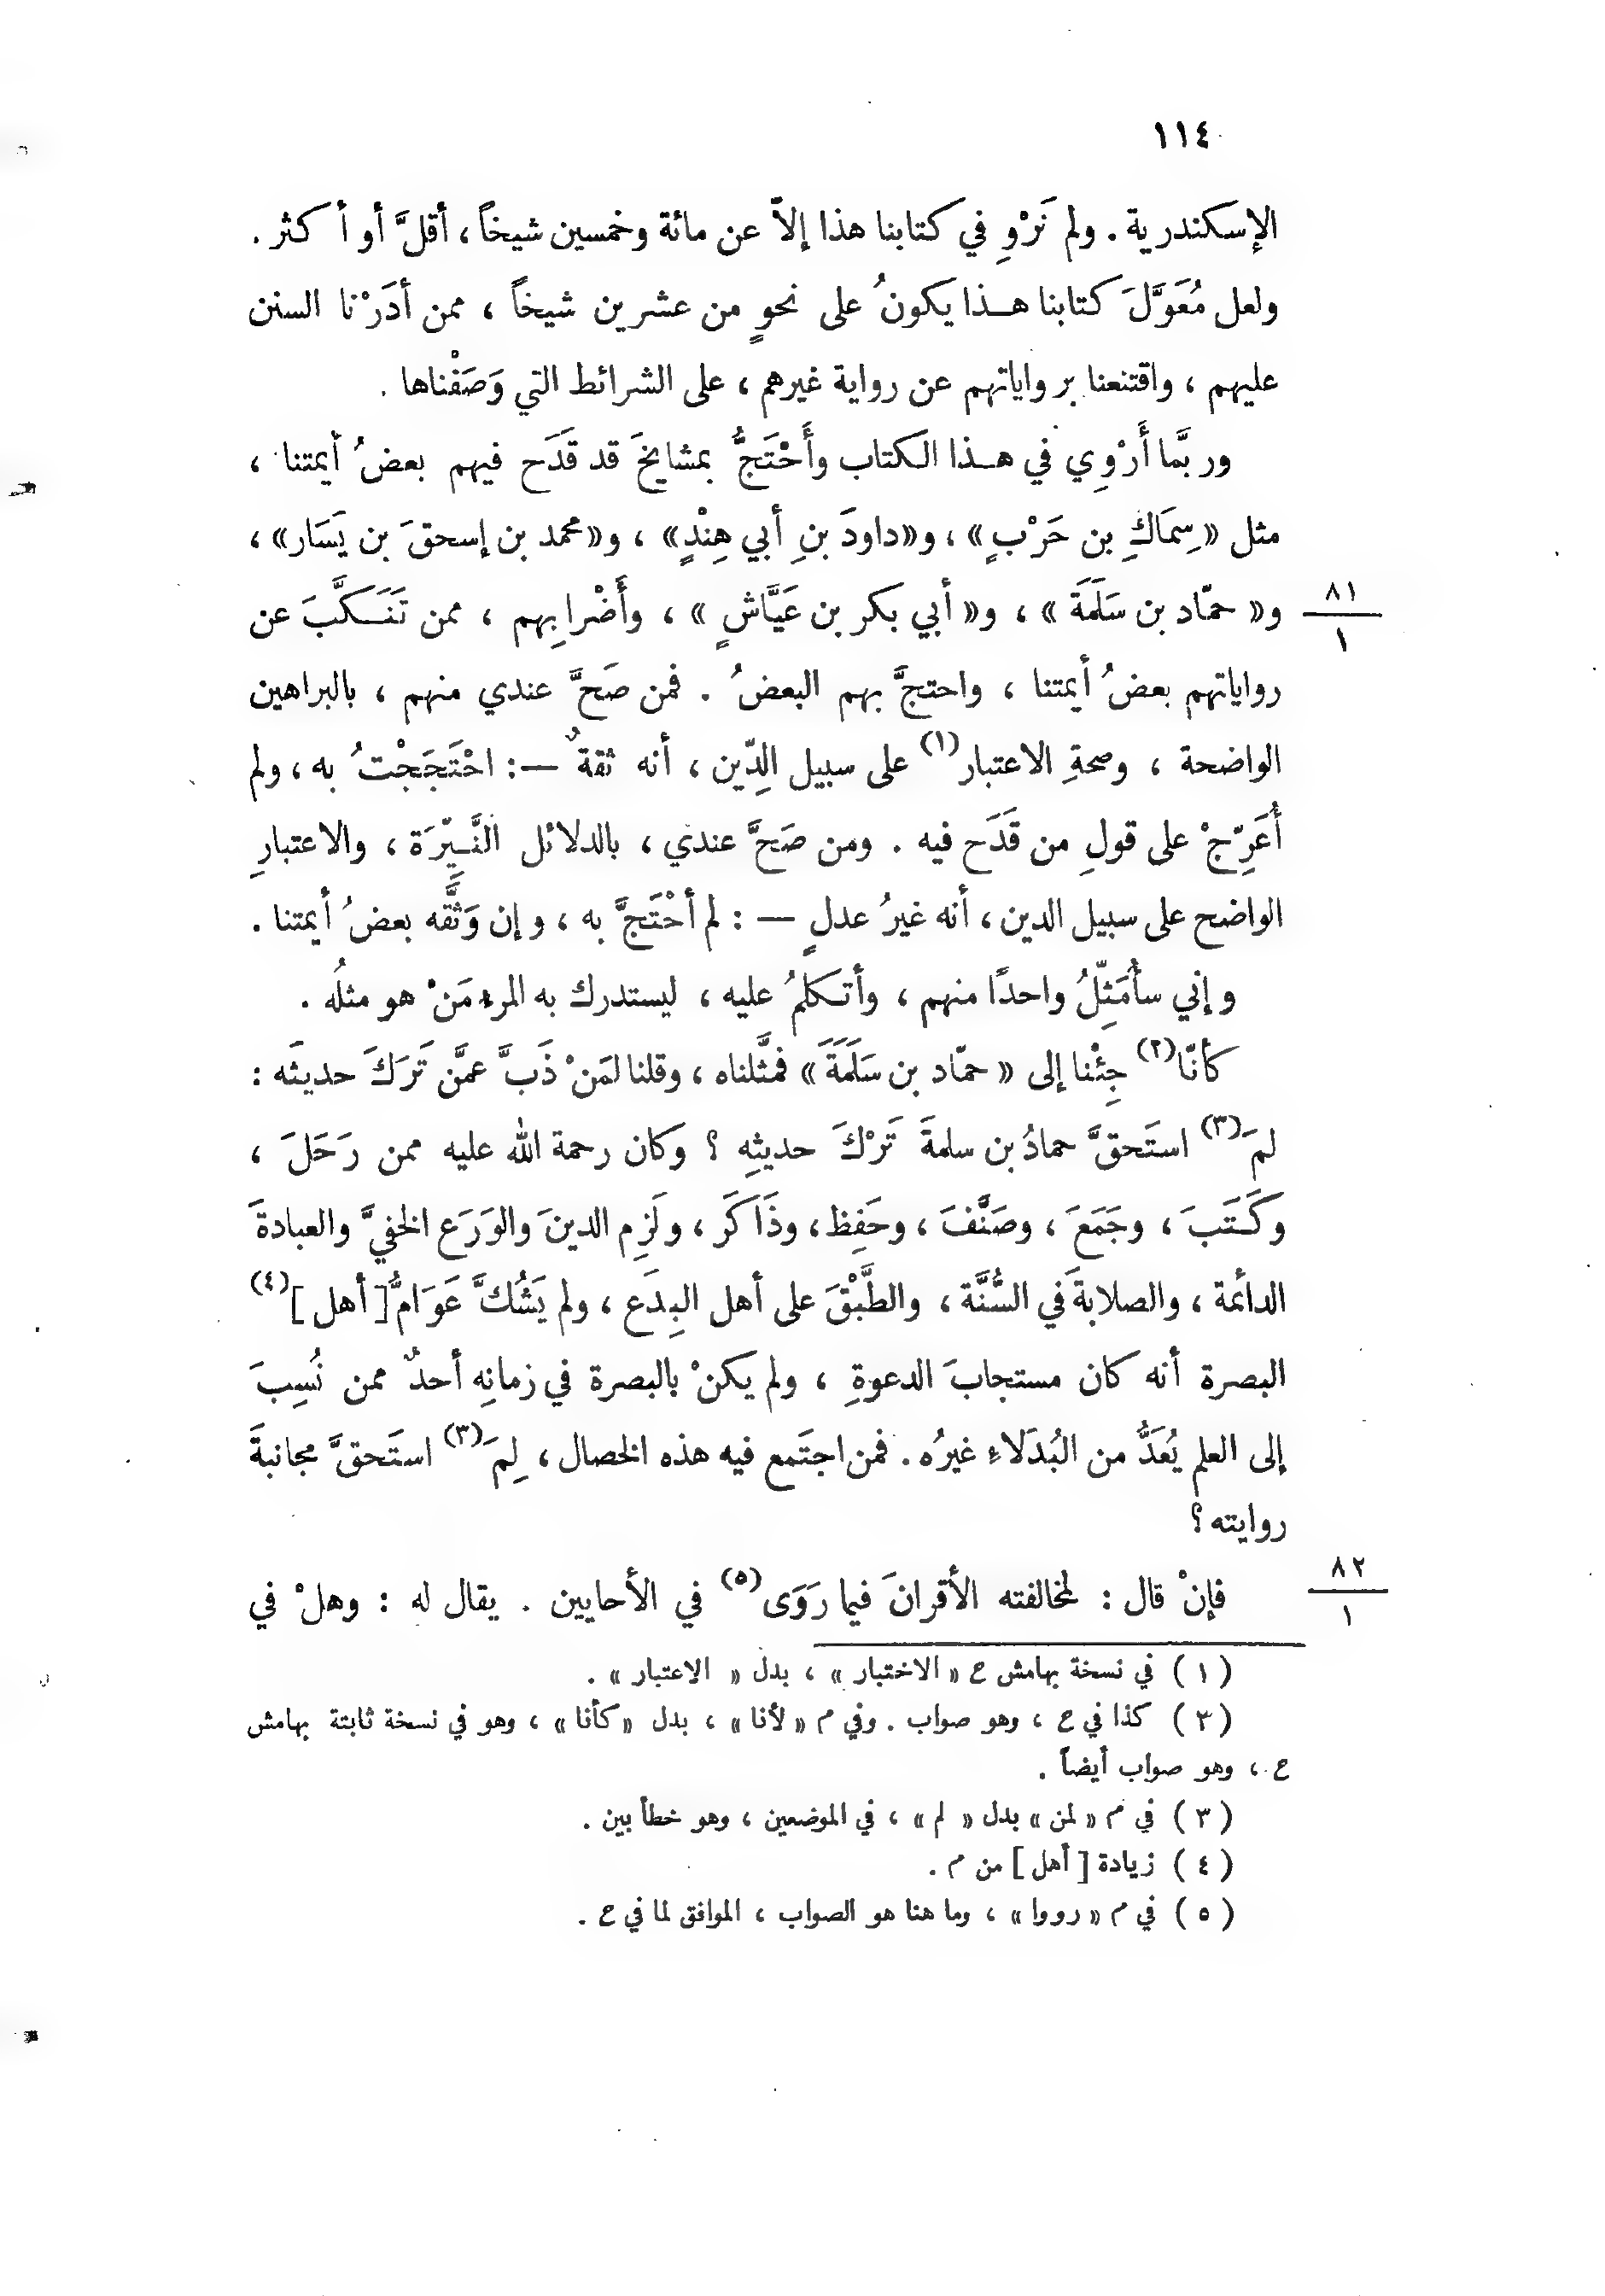 ١١٤
الإسكندرية . ولم نَرْوِ في كتابنا هذا إلاّ عن مائة وخمسين شيخاً ، أقلَّ أو أكثر .
ولعل مُعَوَّلَ كتابنا هـذا يكونُ على نحوٍ من عشرين شيخاً ، ممن أدَرْنا السنن
عليهم ، واقتنعنا برواياتهم عن رواية غيرهم ، على الشرائط التي وَصَفْناها .
وربَّما أَرْوِي في هـذا الكتاب وأَحْتَجُّ بمشايخَ قد قَدَح فيهم بعضُ أيمتنا ،
مثل « سِمَاكِ بن حَرْبٍ » ، و«داودَ بنِ أبي هِنْدٍ» ، و«محمد بن إسحقَ بن يَسَار» ،
و« حمّاد بن سَلَمَةَ » ، و« أبي بكر بن عَيَّاشٍ » ، وأَضْرابِهم ، ممن تَنَـكَّبَ عن
٨١
١
رواياتهم بعضُ أيمتنا ، واحتجَّ بهم البعضُ . فمن صَحَّ عندي منهم ، بالبراهين
الواضحة ، وصحةِ الاعتبار(١) على سبيل الدِّين ، أنه ثقةٌ —: احْتَجَجْتُ به ، ولم
أُعَرِّجْ على قولِ من قَدَح فيه . ومن صَحَّ عندي ، بالدلائل النَّـيِّرَة ، والاعتبارِ
الواضح على سبيل الدين ، أنه غيرُ عدلٍ — : لم أحْتَجَّ به ، وإن وَثَّقه بعضُ أيمتنا .
وإني سأُمَثِّلُ واحداً منهم ، وأتـكلمُ عليه ، ليستدرك به المرء مَنْ هو مثلُه .
كأنّا(٢) جِئْنا إلى « حمّاد بن سَلَمَةَ » فمثَّلناه ، وقلنا لمَنْ ذَبَّ عمَّن تَرَكَ حديثَه :
لمَ(٣) استَحقَّ حمادُ بن سلمةَ تَرْكَ حديثِه ؟ وكان رحمة الله عليه ممن رَحَلَ ،
وكَـتَبَ ، وجَمَعَ ، وصَنَّفَ ، وحَفِظ ، وذَاكَر ، ولَزِم الدينَ والوَرَع الخفيَّ والعبادةَ
الدائمة ، والصلابةَ في السُّنَّة ، والطَّبْقَ على أهل البِدَع ، ولم يَشُكَّ عَوَامُّ [ أهل ](٤)
البصرة أنه كان مستجابَ الدعوةِ ، ولم يكنْ بالبصرة في زمانِه أحدٌ ممن نُسِبَ
إلى العلم يُعَدُّ من البُدَلاءِ غيرُه . فمن اجتَمع فيه هذه الخصال ، لِمَ(٣) استَحقَّ مجانبةَ
روايته ؟
فإنْ قال : لمخالفته الأقرانَ فيما رَوَى(٥) في الأحايين . يقال له : وهلْ في
٨٢
١
( ١ ) في نسخة بهامش ع « الاختبار » ، بدل « الاعتبار » .
( ٢ ) كذا في ع ، وهو صواب . وفي م « لأنا » ، بدل « كأنا » ، وهو في نسخة ثابتة بهامش
ع ، وهو صواب أيضاً .
( ٣ ) في م « لمن » بدل « لم » ، في الموضعين ، وهو خطأ بين .
( ٤ ) زيادة [ أهل ] من م .
( ٥ ) في م « رووا » ، وما هنا هو الصواب ، الموافق لما في ع .